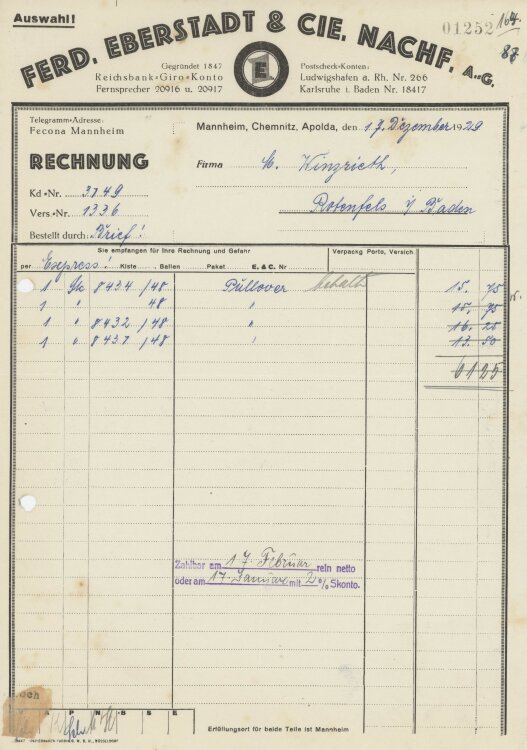 Auswahl!
FERD. EBERSTADT & CIE. NACHF. A.-G.
01252
164
87
Gegründet 1847
Reichsbank-Giro-Konto
Fernsprecher 20916 u. 20917
E
Postscheck-Konten:
Ludwigshafen a. Rh. Nr. 266
Karlsruhe i. Baden Nr. 18417
Telegramm-Adresse:
Fecona Mannheim
Mannheim, Chemnitz, Apolda, den 17. Dezember 1929
RECHNUNG
Firma M. Winzrieth,
Kd.-Nr. 3749
Vers.-Nr. 1336
Rotenfels i/ Baden
Bestellt durch: Brief!
Sie empfangen für Ihre Rechnung und Gefahr
Verpackg Porto, Versich.
per Express! Kiste Ballen Paket E. & C. Nr
1 Stk 8434 /48 Pullover behalt 15. 75
1 " 48 " 15. 75
1 " 8432 /48 " 16 25
1 " 8437 /48 " 13. 50
61 25
Zahlbar am 17. Februar rein netto
oder am 17. Januar mit 2 % Skonto.
A P N B S E
Erfüllungsort für beide Teile ist Mannheim